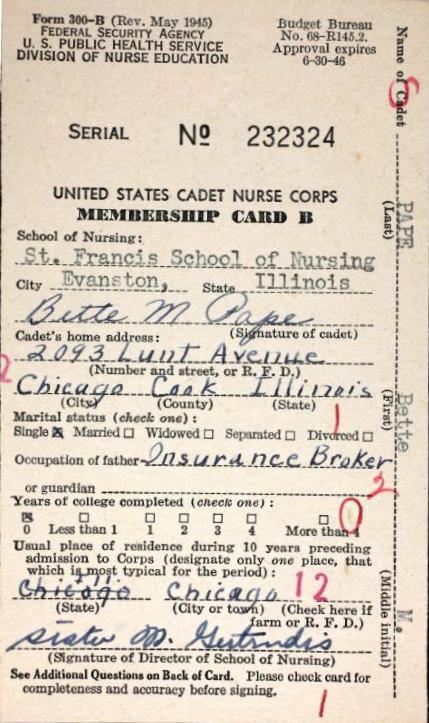 Form 300-B (Rev. May 1945)
FEDERAL SECURITY AGENCY
U. S. PUBLIC HEALTH SERVICE
DIVISION OF NURSE EDUCATION
Budget Bureau
No. 68-R145.2.
Approval expires
6-30-46
SERIAL № 232324
UNITED STATES CADET NURSE CORPS
MEMBERSHIP CARD B
School of Nursing:
St. Francis School of Nursing
City Evanston, State Illinois
Bette M Pape
(Signature of cadet)
Cadet's home address:
2093 Lunt Avenue
(Number and street, or R. F. D.)
2
Chicago Cook Illinois
(City) (County) (State)
Marital status (check one): 1
Single ☒ Married ☐ Widowed ☐ Separated ☐ Divorced ☐
Occupation of father Insurance Broker
or guardian 2
Years of college completed (check one): 0
☒ ☐ ☐ ☐ ☐ ☐ ☐
0 Less than 1 1 2 3 4 More than 4
Usual place of residence during 10 years preceding
admission to Corps (designate only one place, that
which is most typical for the period):
Chicago 12
(State) (City or town) (Check here if
farm or R. F. D.)
Sister M. Gertrudis
(Signature of Director of School of Nursing)
See Additional Questions on Back of Card. Please check card for
completeness and accuracy before signing.
1
Name of Cadet PAPE Bette M.
(Last) (First) (Middle initial)